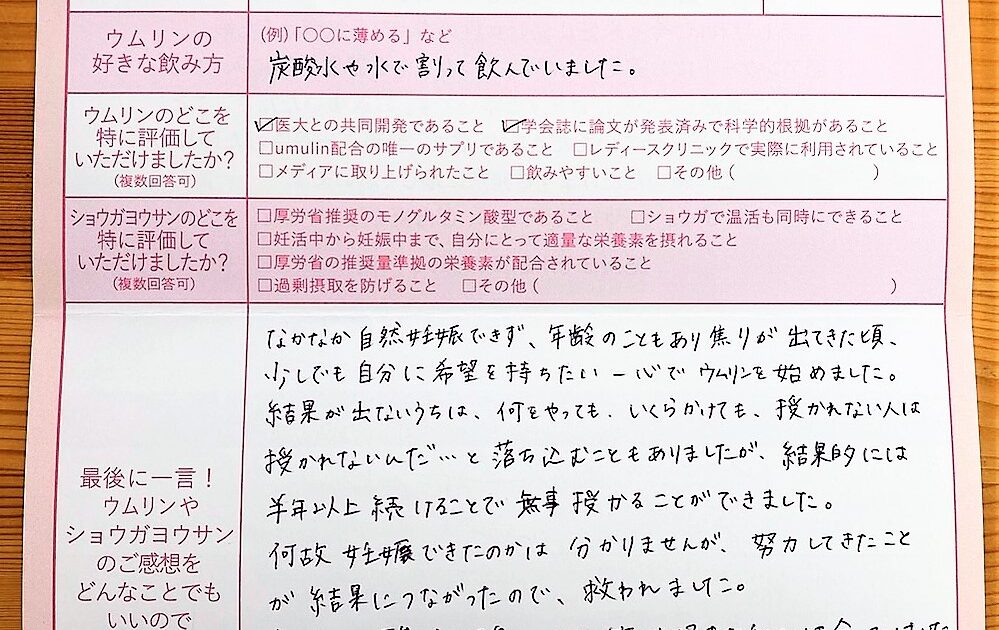 ウムリンの
好きな飲み方
(例)「〇〇に薄める」など
炭酸水や水で割って飲んでいました。
ウムリンのどこを
特に評価して
いただけましたか?
(複数回答可)
☑医大との共同開発であること ☑学会誌に論文が発表済みで科学的根拠があること
□umulin配合の唯一のサプリであること □レディースクリニックで実際に利用されていること
□メディアに取り上げられたこと □飲みやすいこと □その他( )
ショウガヨウサンのどこを
特に評価して
いただけましたか?
(複数回答可)
□厚労省推奨のモノグルタミン酸型であること □ショウガで温活も同時にできること
□妊活中から妊娠中まで、自分にとって適量な栄養素を摂れること
□厚労省の推奨量準拠の栄養素が配合されていること
□過剰摂取を防げること □その他( )
最後に一言!
ウムリンや
ショウガヨウサン
のご感想を
どんなことでも
いいので
なかなか自然妊娠できず、年齢のこともあり焦りが出てきた頃、
少しでも自分に希望を持ちたい一心でウムリンを始めました。
結果が出ないうちは、何をやっても、いくらかけても、授かれない人は
授かれないんだ…と落ち込むこともありましたが、結果的には
半年以上続けることで無事授かることができました。
何故妊娠できたのかは分かりませんが、努力してきたこと
が結果につながったので、救われました。